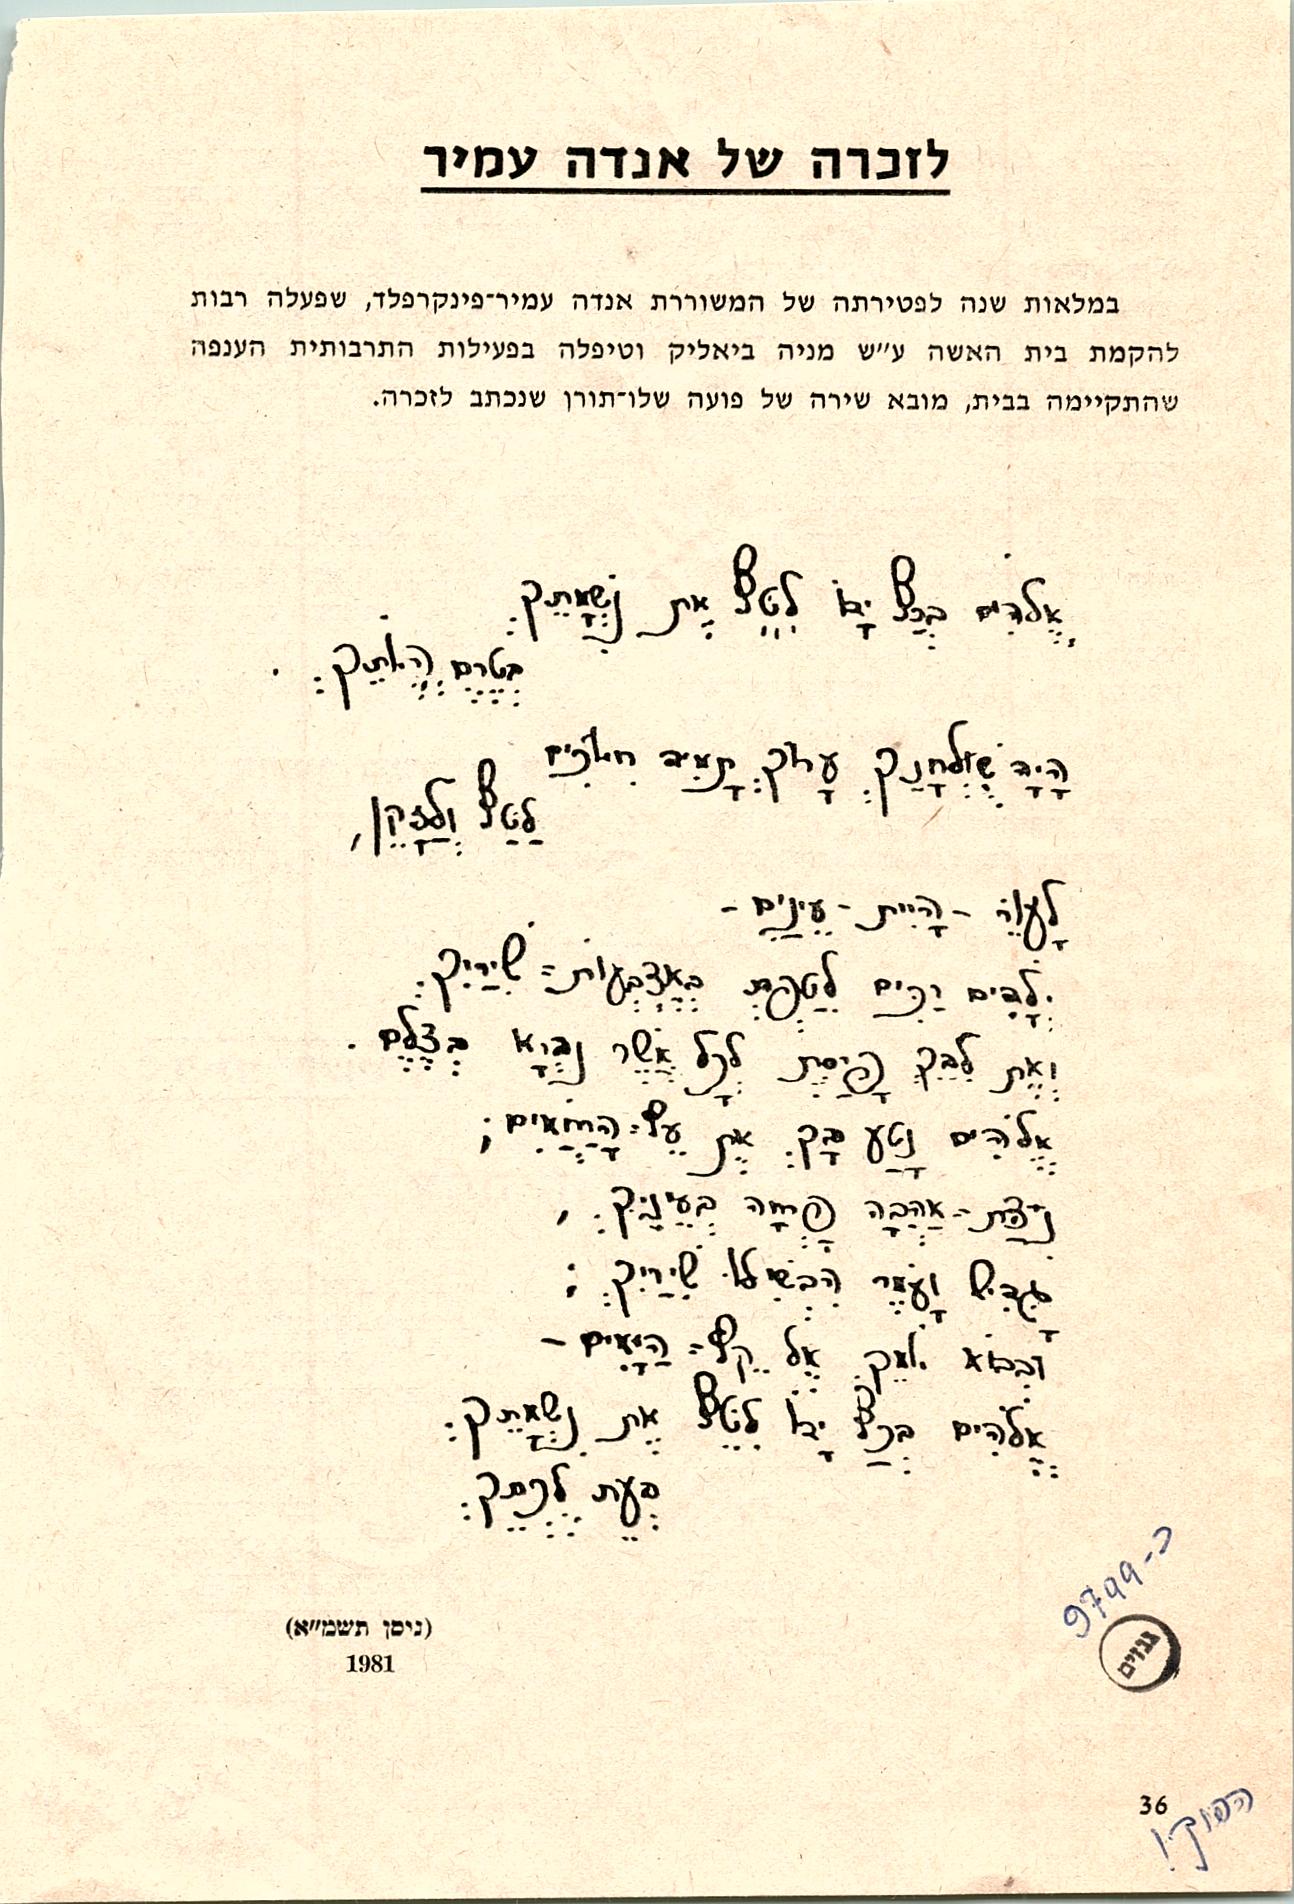 לזכרה של אנדה עמיר
במלאות שנה לפטירתה של המשוררת אנדה עמיר־פינקרפלד, שפעלה רבות
להקמת בית האשה ע״ש מניה ביאליק וטיפלה בפעילות התרבותית הענפה
שהתקיימה בבית, מובא שירה של פועה שלו־תורן שנכתב לזכרה.
אֱלֹהִים בְּכַף יָדוֹ לִטֵּף אֶת נִשְׁמָתֵךְ
בְּטֶרֶם
הָיָה שֻׁלְחָנֵךְ עָרוּךְ תָּמִיד
לַטַּף וְלַזָּקֵן,
לָעִוֵּר – הָיִית – עֵינַיִם –
יְלָדִים רַכִּים לִטַּפְתְּ בְּאֶצְבְּעוֹת = שִׁירַיִךְ
וְאֶת לִבֵּךְ פִּיַּסְתְּ לְכָל אֲשֶׁר נִבְרָא בְּצֶלֶם .
אֱלֹהִים נָטַע בָּךְ אֶת עֵץ = הַחַיִּים ;
נִצַּת = אַהֲבָה פָּרְחָה בְּעֵינַיִךְ ,
גָּדִישׁ וָעֹמֶר הִבְשִׁילוּ שִׁירַיִךְ ;
וּבְבוֹא יוֹמֵךְ אֶל קֵץ = הַיָּמִים –
אֱלֹהִים בְּכַף יָדוֹ לִטֵּף אֶת נִשְׁמָתֵךְ
בְּעֵת לֶכְתֵּךְ
(ניסן תשמ״א)
1981
כ-9799
גנזים
36